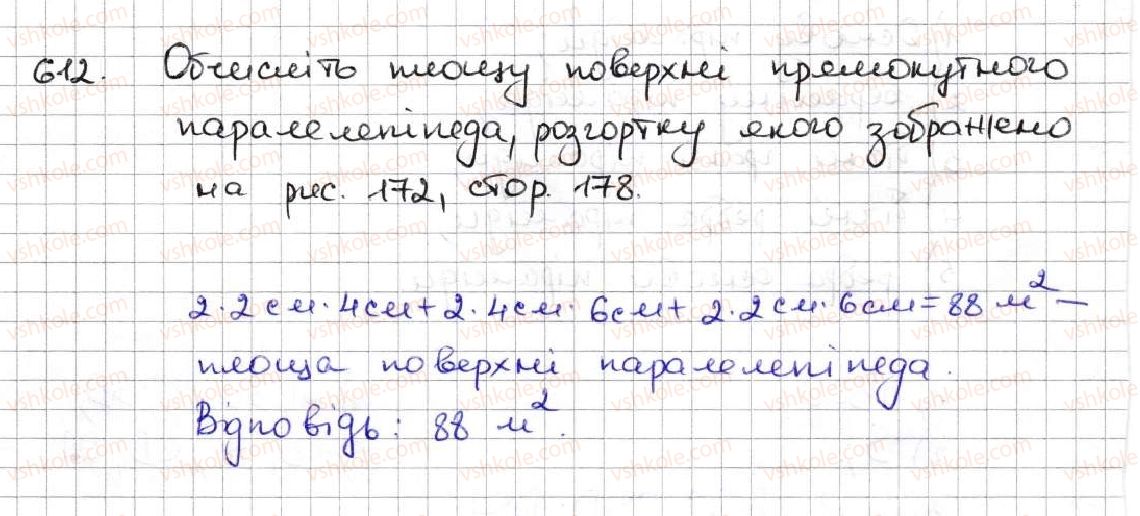 612. Обчисліть площу поверхні прямокутного
паралелепіпеда, розгортку якого зображено
на рис. 172, стор. 178.
2·2см·4см+2·4см·6см+2·2см·6см=88 м² –
площа поверхні паралелепіпеда.
Відповідь: 88 м².